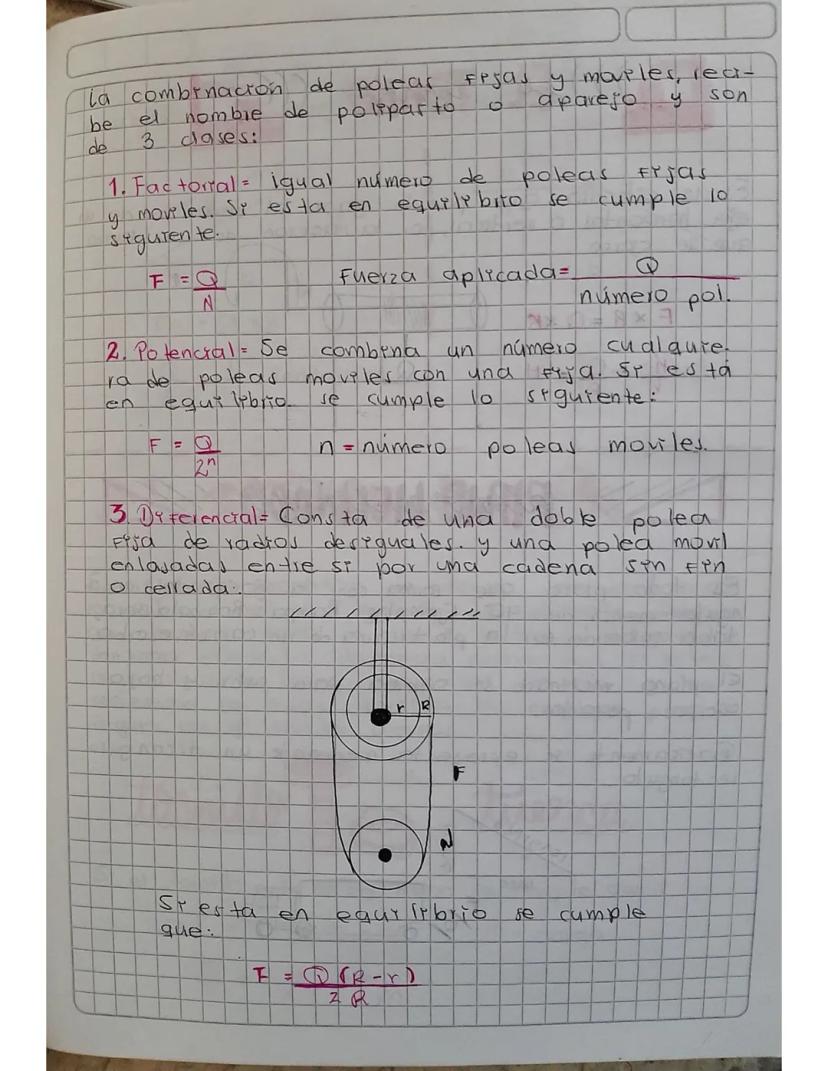 La combinacion de poleas fijas y moviles, reci-
be el nombre de poliparto o aparejo y son
de 3 clases:
1. Factorial = igual número de poleas fijas
y moviles. Si esta en equilibrio se cumple lo
siguiente.
F = Q/N Fuerza aplicada = Q/número pol.
2. Potencial = Se combina un número cualquie-
ra de poleas moviles con una fija. Si está
en equilibrio se cumple lo siguiente:
F = Q/2ⁿ n = número poleas moviles.
3. Diferencial = Consta de una doble polea
fija de radios desiguales. y una polea movil
enlasadas entre si por una cadena sin fin
o cerrada.
r R
F
N
Si esta en equilibrio se cumple
que:
F = Q (R-r)/2 R